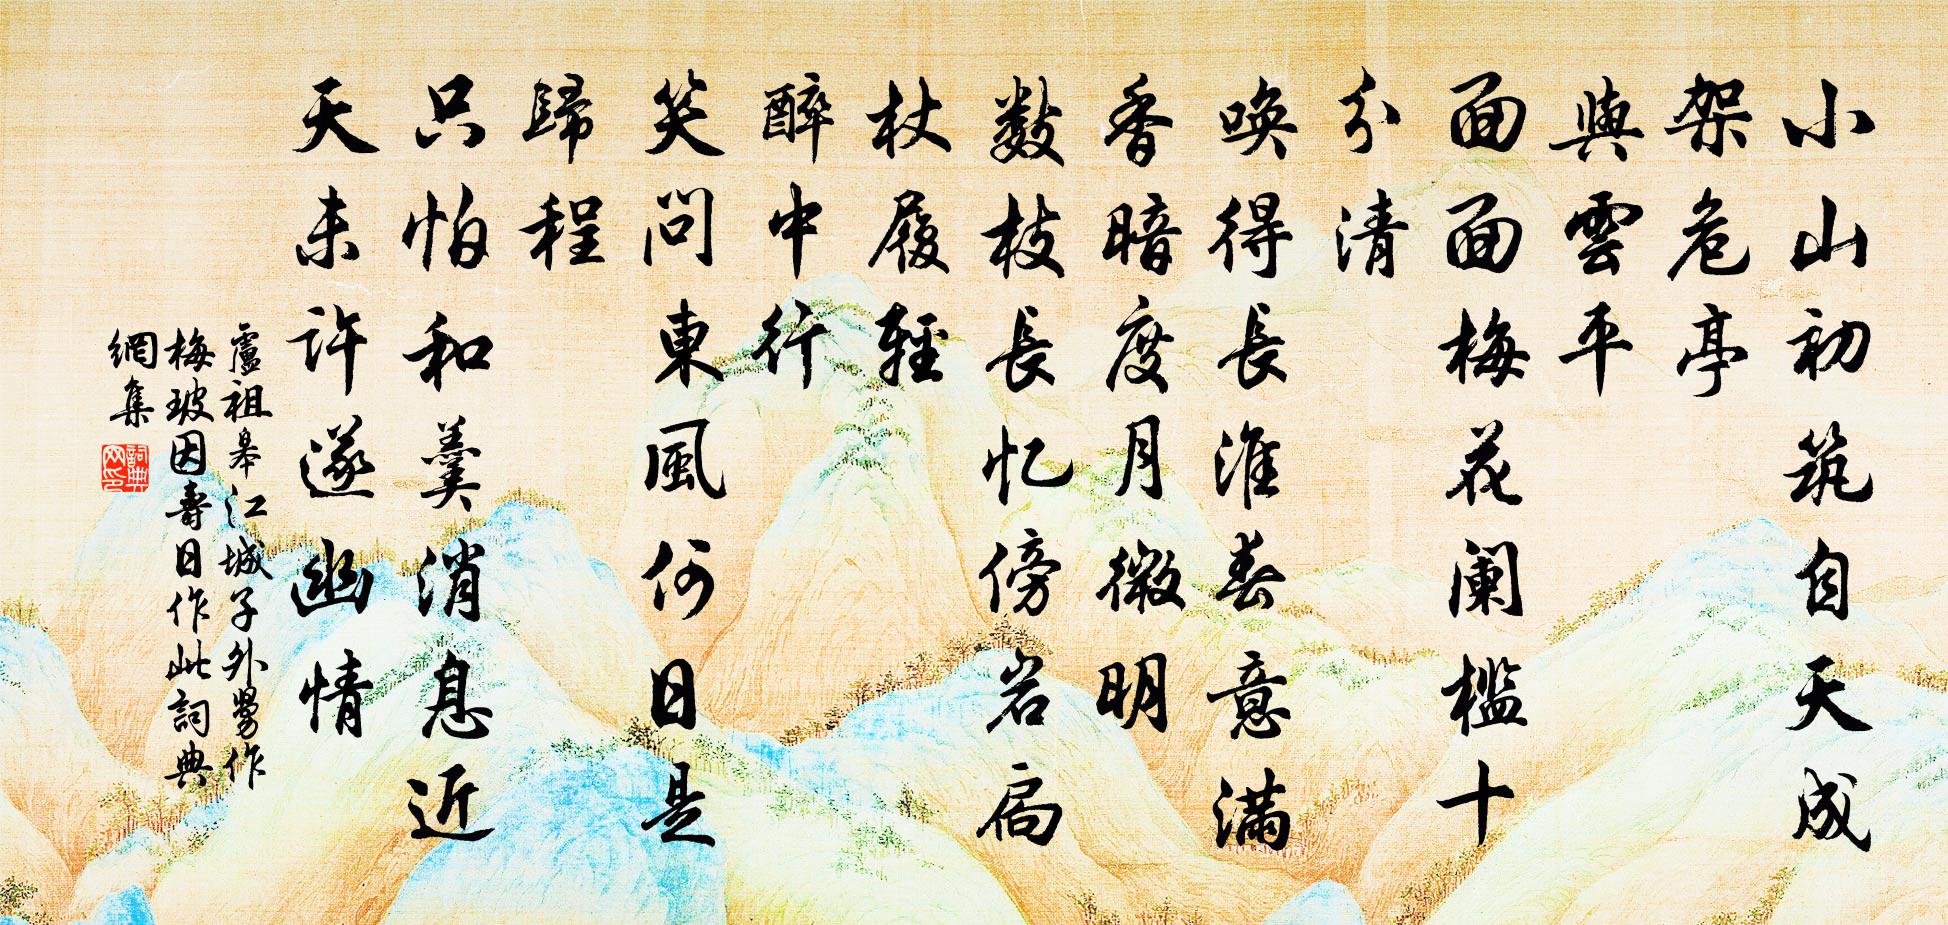 小山初筑自天成
架危亭
與雲平
面面梅花阑槛十
分清
唤得長淮春意满
香暗度月微明
数枝長忆傍岩扃
杖履輕
醉中行
笑問東風何日是
歸程
只怕和羹消息近
天未許遂幽情
盧祖皋江城子外舅作
梅玻因壽日作此詞典
網集
詞典
网印